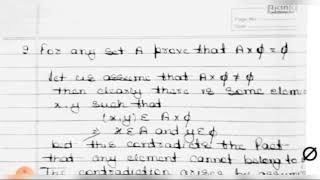 for any set A prove that A×ϕ=ϕ
let us assume that A×ϕ≠ϕ
then clearly there is some elem
x,y such that
(x,y)ε A×ϕ
⇒ xεA and yεϕ
but this contradicts the fact
that any element cannot belong to ϕ
The contradiction arises by assum